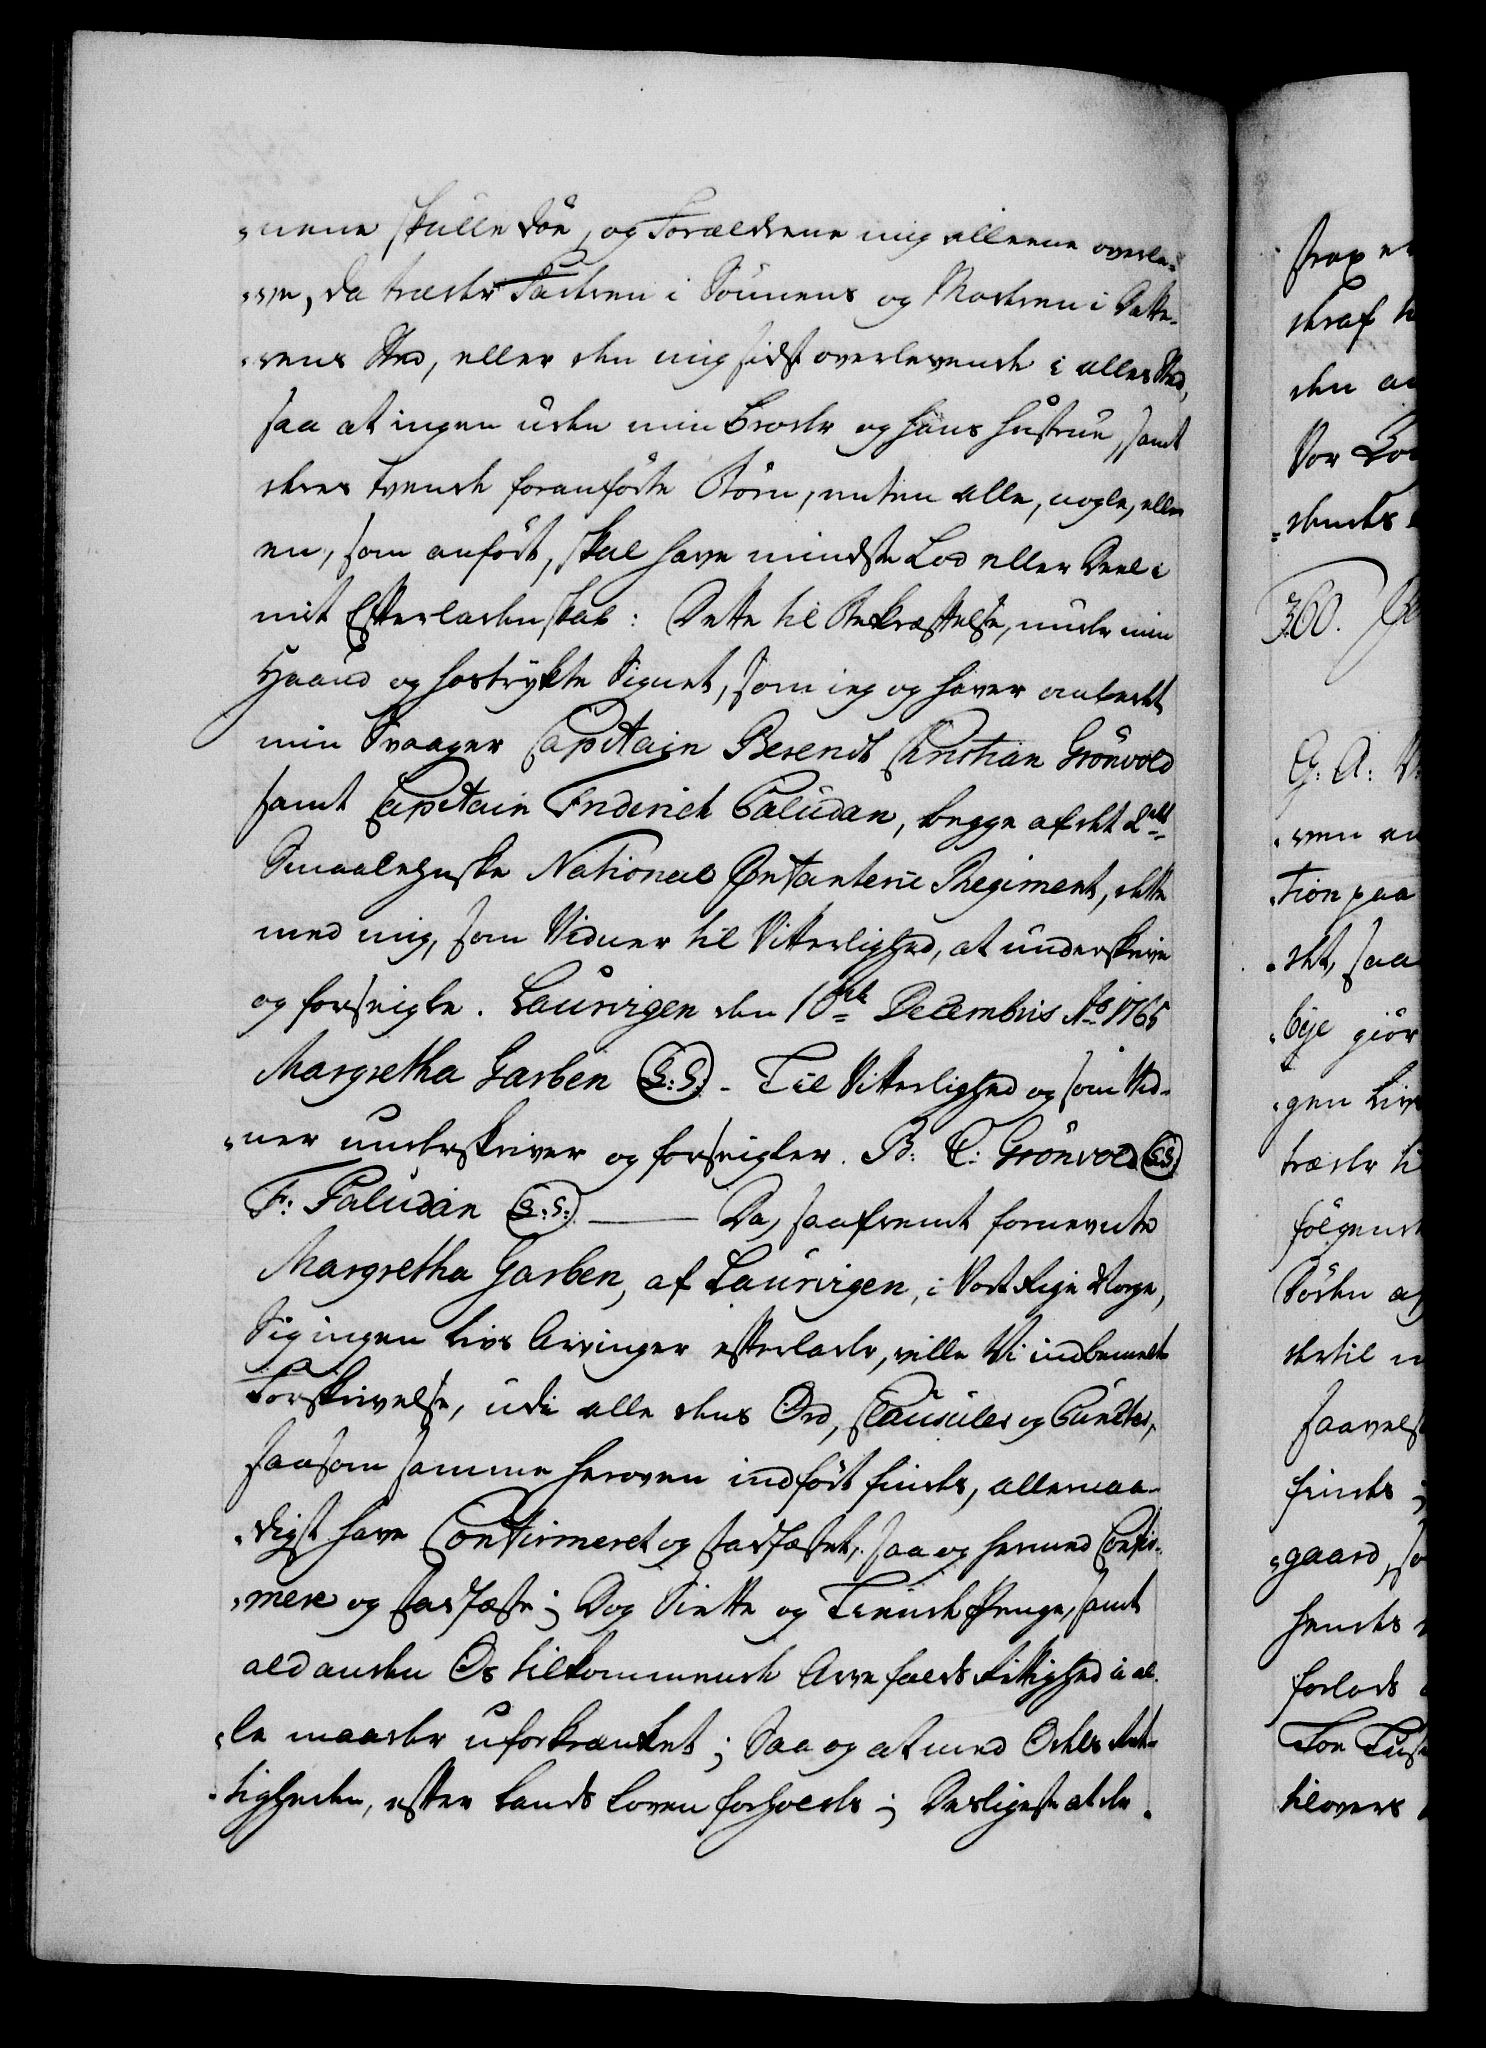 „nene skulle döe, og Forældrene mig alleene overle„
„ve, da træder Fadren i Sönnens og Modren i Datte„
„rens Sted, eller den mig sidst overlevende i alles Sted,
saa at ingen uden min Broder og hans Hustrue, samt
deres tvende foranförte Börn, enten alle, nogle, eller
en, som anfört, skal have mindste Lod eller Deel i
mit Efterladenskab: Dette til Bekræftelse, under min
Haand og hostrykte Signet, som ieg og haver ombedet
min Svaager Capitain Berendt Christian Grönvold
samt Capitain Friderich Paludan, begge af det 2det
Smaalehnske National Infanterie Regiment, dette
med mig, som Vidner til Vitterlighed, at underskrive
og forseigle. Laurvigen den 10de Decembris Ao 1765
Margretha Garben (L:S:) - Til Vitterlighed og som Vid-
„ner underskriver og forseigler. B: C: Grönvold (L:S)
F: Paludan (L:S:) ——— Da, saafremt fornevnte
Margretha Garben, af Laurvigen, i Vort Rige Norge,
Sig ingen Livs Arvinger efterlader, ville Vi indbemelte
Forskrivelse, udi alle dens Ord, Clausuler og Puncter,
saasom samme heroven indfört findes, allernaa-
„digst have Confirmeret og stadfæstet, saa og hermed Confir„
„mere og stadfæste; Dog Siette og Tiende Penge, samt
ald anden Os tilkommende Arve falds Rettighed i al„
„le maader uforkrænket; Saa og at med Odels Ret„
„tigheden, efter Lands Loven forholdes; Desligeste at de

strax e
straf
den an
Vor Lo
„dendes
360.
G: A: V
„ven an
„tion paa
„det, saa
„lige giör
„gen Live
træder ti
fölgende
Söden af
dertil
saavels
findes
„gaard, so
hendes
forlods
Toe Tuse
tilovers